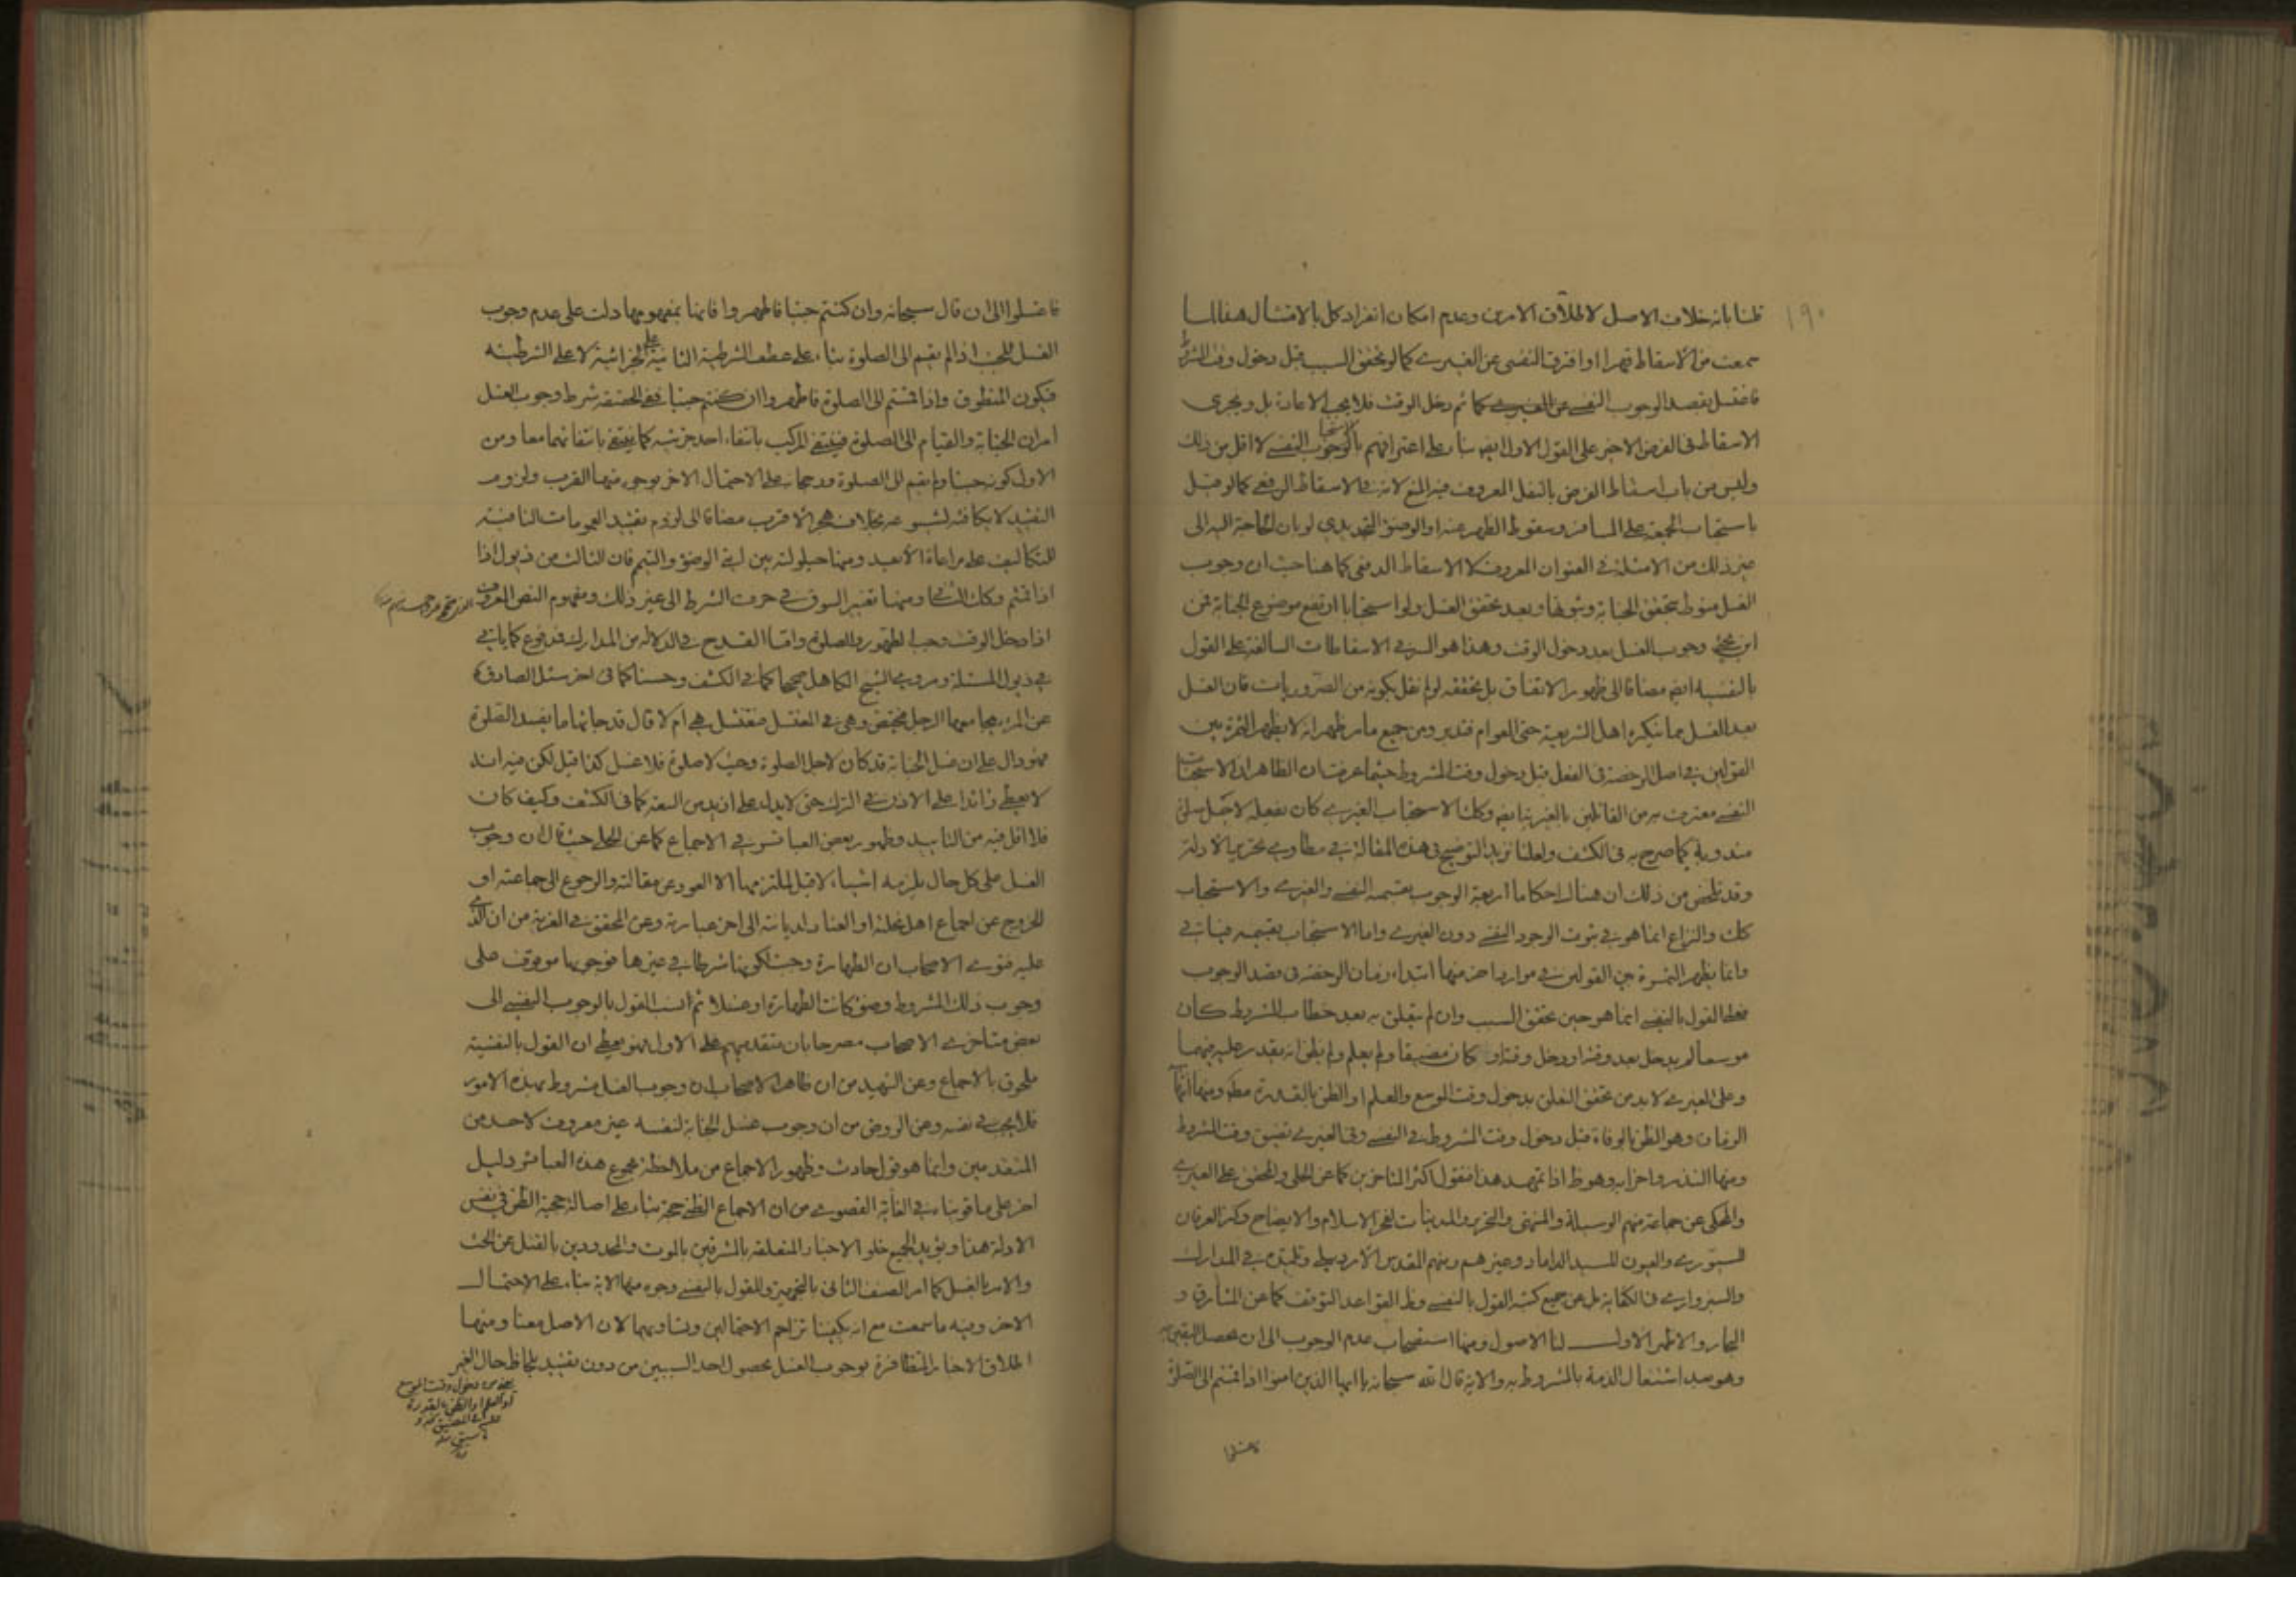 ١٩٠
قلنا بانه خلاف الاصل لاطلاق الامرين وعدم امكان انفراد كل بالامتثال هنا لما
سمعت من الاسقاط قهرا او افترق النفسى عن الغيرى كما لو تحقق السبب قبل دخول وقت المشروط
فاغتسل بقصد الوجوب النفسى عن الغيرى كما ثم دخل الوقت فلا يجب الاعادة بل ويجرى
الاسقاط فى الفرض الاخير على القول الاول ايضا بناء على اعترافهم بالوجوب النفسى لا اقل من ذلك
وليس من باب اسقاط الفرض بالنفل المعروف فيه المنع لانه فى الاسقاط الرفعى كما لو قيل
باستحباب الجمعة على المسافر وسقوط الظهر عنه او الوضوء التجديدى لو بان الحاجة اليه الى
غير ذلك من الامثلة فى العنوان المعروف لا الاسقاط الدفعى كما هنا حيث ان وجوب
الغسل منوط بتحقق الجنابة وثبوتها وبعد تحقق الغسل ولو استحبابا ارتفع موضوع الجنابة فمن
اين يجئ وجوب الغسل بعد دخول الوقت وهذا هو السر فى الاسقاطات السالفة على القول
بالنفسية ايضا مضافا الى ظهور الاتفاق بل تحققه لو لم نقل بكونه من الضروريات فان الغسل
بعد الغسل مما ينكره اهل الشريعة حتى العوام فتدبر ومن جميع ما مر ظهر انه لا يظهر الثمرة بين
القولين فى اصل الرخصة فى الفعل قبل دخول وقت المشروط حيثما عرفت ان الظاهر ان الاستحباب
النفسى معترف به من القائلين بالغير ايضا وكك الاستحباب الغيرى كان يفعله لاجل صلوة
مندوبة كما صرح به فى الكشف ولعلنا نزيد التوضيح فى هذه المقالة فى مطاوى تحرير الادلة
وقد تلخص من ذلك ان هناك احكاما اربعة الوجوب بقسميه النفسى والغيرى والاستحباب
كك والنزاع انما هو فى ثبوت الوجوب النفسى دون الغيرى واما الاستحباب بقسميه فثابت
وانما يظهر الثمرة بين القولين فى موارد اخر منها ابتداء زمان الرخصة فى قصد الوجوب
فعلى القول بالنفسى انما هو حين تحقق السبب وان لم يتعلق به بعد خطاب المشروط كان
موسعا لم يدخل بعد وقته او دخل وقته او كان مضيقا ولم يعلم ولم يظن انه يقدر عليه فيهما
وعلى الغيرى لا بد من تحقق التعلق بدخول وقت الموسع والعلم او الظن بالقدرة مطلقا ومنها انها
الزمان وهو الظن بالوفاة قبل دخول وقت المشروط فى النفسى وفى الغيرى تضيق وقت المشروط
ومنها النذر واضرابه وهو ظ اذا تمهد هذا فنقول اكثر المتاخرين كما عن الحلى والمحقق على الغيرى
والمحكى عن جماعة منهم الوسيلة والمنتهى والتحرير والمدنيات لفخر الاسلام والايضاح وكنز العرفان
للسيورى والعيون للسيد الداماد وغيرهم ومنهم المقدس الاردبيلى وتلميذه فى المدارك
والسبزوارى فى الكفاية بل عن جميع كتبه القول بالنفسى وظ القواعد التوقف كما عن المشارق و
البحار والاظهر الاول لنا الاصول ومنها استصحاب عدم الوجوب الى ان يحصل اليقين به
وهو بعد اشتغال الذمة بالمشروط به والاية قال الله سبحانه يا ايها الذين امنوا اذا قمتم الى الصلوة
فاغسلوا
فاغسلوا الى ان قال سبحانه وان كنتم جنبا فاطهروا فانها بمفهومها دلت على عدم وجوب
الغسل للجنب اذا لم يقم الى الصلوة بناء على عطف الشرطية الثانية على الجزائية لا على الشرطية
فيكون المنطوق واذا قمتم الى الصلوة فاطهروا ان كنتم جنبا ففى الحقيقة شرط وجوب الغسل
امران الجنابة والقيام الى الصلوة فينتفى المركب بانتفاء احد جزئيه كما ينتفى بانتفائهما معا ومن
الاول كونه جنبا ولم يقم الى الصلوة ورجحانه على الاحتمال الاخر بوجوه منها القرب ولزوم
التقييد لا يكافئه لشيوعه بخلاف هجر الاقرب مضافا الى لزوم تقييد العمومات النافية
للتكاليف على مراعاة الابعد ومنها حيلولته بين ايتى الوضوء والتيمم فان الثالث من ذيول اذا
اذا قمتم وكك الثانى ومنها تغيير السوق فى حرف الشرط الى غير ذلك ومفهوم النص المعروف
اذا دخل الوقت وجب الطهور والصلوة واما القدح فى الدلالة من المدارك فمدفوع كما ياتى
فى ذيول المسئلة ومروى الشيخ الكاهلى صحيحا كما فى الكشف وحسنا كما فى اخر سئل الصادق ع
عن المرءة يجامعها الرجل فتحيض وهى فى المغتسل تغتسل هى ام لا قال قد جائها ما يفسد الصلوة
فهو دال على ان غسل الجنابة قد كان لاجل الصلوة وحيث لا صلوة فلا غسل كذا قيل لكن فيه انه
لا يعطى زائدا على الاذن فى الترك حتى لا يدل على ازيد من السعة كما فى الكشف وكيف كان
فلا اقل فيه من التاييد وظهور بعض العبائر فى الاجماع كما عن الحلى حيث قال ان وجوب
الغسل على كل حال يلزمه اشياء لا قبل لملتزمها الا العود عن مقالته والرجوع الى جماعته او
الخروج عن اجماع اهل نحلته او العناد لديانته الى اخر عبارته وعن المحقق فى العزية من ان الذى
عليه فتوى الاصحاب ان الطهارة وجبت لكونها شرطا فى غيرها فوجوبها موقوف على
وجوب ذلك المشروط وضوء كانت الطهارة او غسلا ثم انسب القول بالوجوب النفسى الى
بعض متاخرى الاصحاب مصرحا بان متقدميهم على الاول فهو يعطى ان القول بالنفسية
ملحوق بالاجماع وعن الشهيد من ان ظاهر الاصحاب ان وجوب الغسل مشروط بهذه الامور
فلا يجب فى نفسه وعن الروض من ان وجوب غسل الجنابة لنفسه غير معروف لاحد من
المتقدمين وانما هو قول حادث وظهور الاجماع من ملاحظة مجموع هذه العبائر دليل
اخر على ما قويناه فى الغاية القصوى من ان الاجماع الظنى حجة بناء على اصالة حجية الظن فى نفس
الادلة هذا ويؤيد الجميع خلو الاخبار المتعلقة بالمشرفين بالموت والمحدودين بالقتل عن الحث
والامر بالغسل كما امر الصنف الثانى بالتجهيز وللقول بالنفسى وجوه منها الاية بناء على الاحتمال
الاخر وفيه ما سمعت مع انه يكفينا تزاحم الاحتمالين وتساويهما لان الاصل معنا ومنها
اطلاق الاخبار المتظافرة بوجوب الغسل بحصول احد السببين من دون تقييد بلحاظ حال الغير
يعنى من دخول وقت الموسع
او العلم او الظن بالقدرة